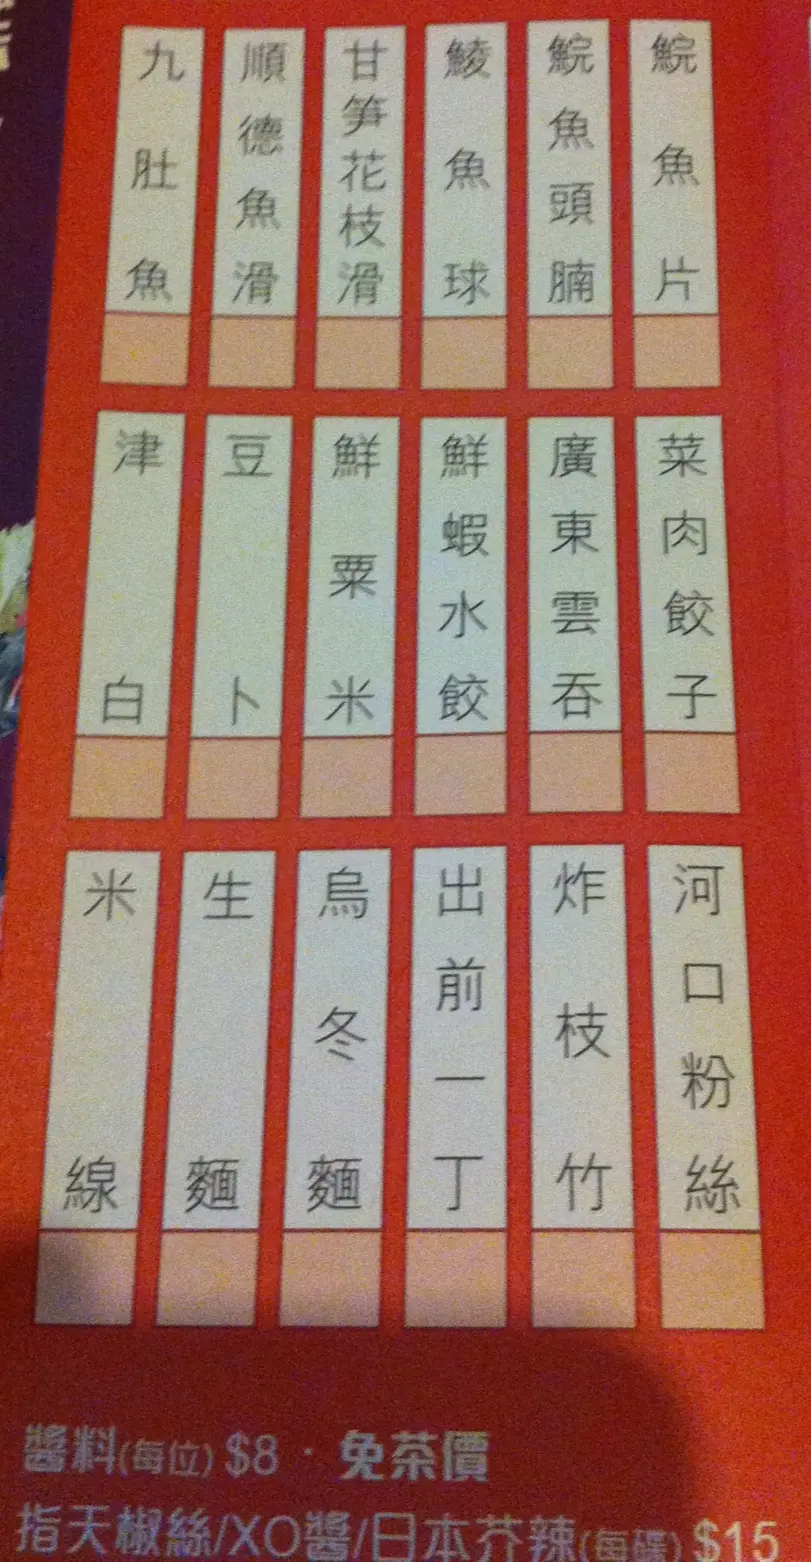 鯇魚片
鯇魚頭腩
鯪魚球
甘笋花枝滑
順德魚滑
九肚魚
菜肉餃子
廣東雲吞
鮮蝦水餃
鮮粟米
豆卜
津白
河口粉絲
炸枝竹
出前一丁
烏冬麵
生麵
米線
醬料(每位) $8 · 免茶價
指天椒絲/XO醬/日本芥辣(每碟) $15